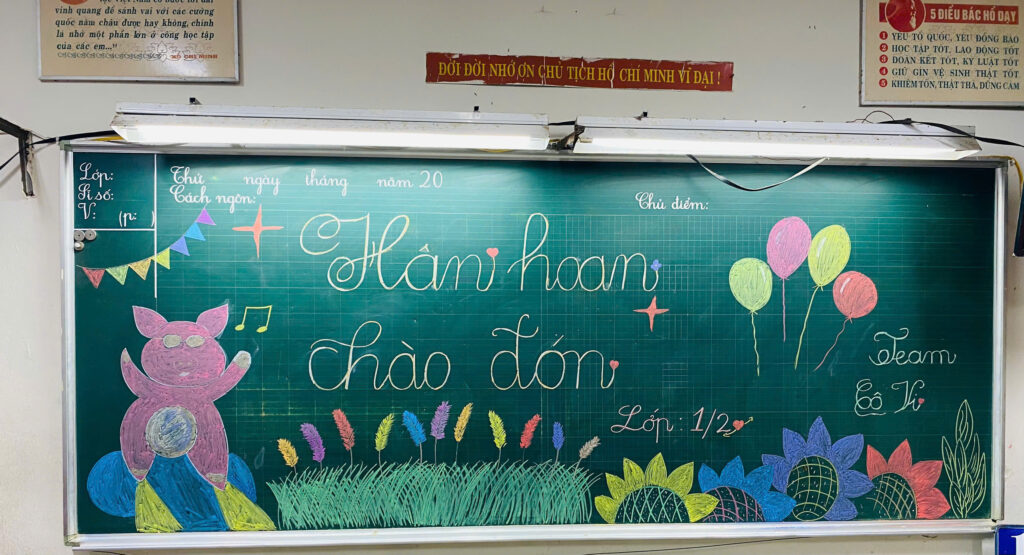 vinh quang để sánh vai với các cường
quốc năm châu được hay không, chính
là nhờ một phần lớn ở công học tập
của các em..."
HỒ CHÍ MINH
ĐỜI ĐỜI NHỚ ƠN CHỦ TỊCH HỒ CHÍ MINH VĨ ĐẠI !
5 ĐIỀU BÁC HỒ DẠY
1 YÊU TỔ QUỐC, YÊU ĐỒNG BÀO
2 HỌC TẬP TỐT, LAO ĐỘNG TỐT
3 ĐOÀN KẾT TỐT, KỶ LUẬT TỐT
4 GIỮ GÌN VỆ SINH THẬT TỐT
5 KHIÊM TỐN, THẬT THÀ, DŨNG CẢM
Lớp:
Sĩ số:
V: (p: )
Thứ ngày tháng năm 20
Cách ngôn:
Chủ điểm:
Hân hoan
chào đón
Lớp: 1/2
Team
Cô Vi